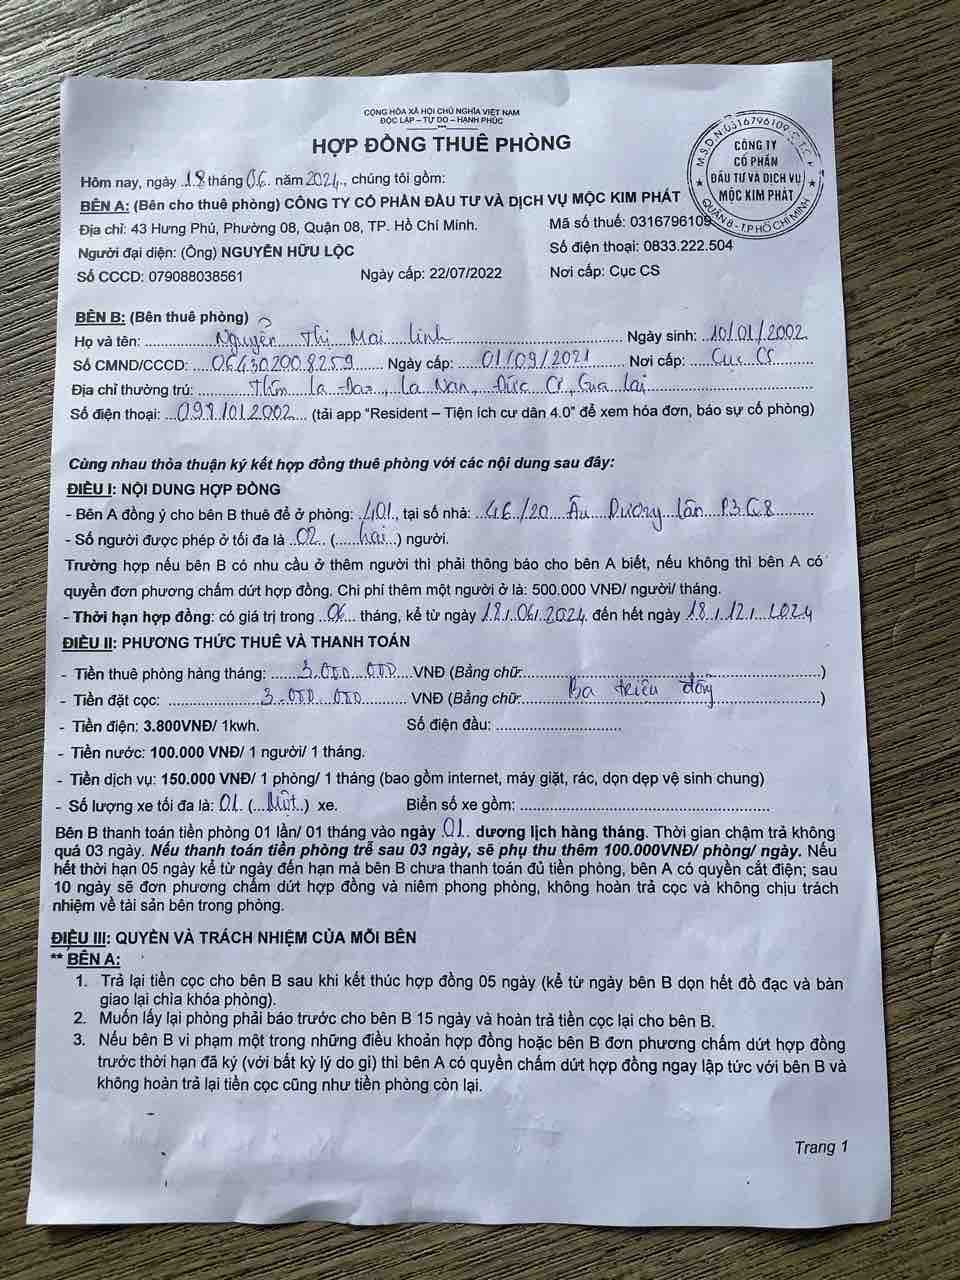 CỘNG HÒA XÃ HỘI CHỦ NGHĨA VIỆT NAM
ĐỘC LẬP – TỰ DO – HẠNH PHÚC
HỢP ĐỒNG THUÊ PHÒNG
M.S.D.N:0316796109
CÔNG TY
CỔ PHẦN
ĐẦU TƯ VÀ DỊCH VỤ
MỘC KIM PHÁT
QUẬN 8 - T.P HỒ CHÍ MINH
Hôm nay, ngày 18 tháng 06. năm 2024., chúng tôi gồm:
BÊN A: (Bên cho thuê phòng) CÔNG TY CỔ PHẦN ĐẦU TƯ VÀ DỊCH VỤ MỘC KIM PHÁT
Địa chỉ: 43 Hưng Phú, Phường 08, Quận 08, TP. Hồ Chí Minh. Mã số thuế: 0316796109
Người đại diện: (Ông) NGUYỄN HỮU LỘC Số điện thoại: 0833.222.504
Số CCCD: 079088038561 Ngày cấp: 22/07/2022 Nơi cấp: Cục CS
BÊN B: (Bên thuê phòng)
Họ và tên: Nguyễn Thị Mai Linh Ngày sinh: 10/01/2002
Số CMND/CCCD: 064302008259 Ngày cấp: 01/09/2021 Nơi cấp: Cục CS
Địa chỉ thường trú: Thôn Ia Nan, Đức Cơ, Gia Lai
Số điện thoại: (tải app "Resident – Tiện ích cư dân 4.0" để xem hóa đơn, báo sự cố phòng)
Cùng nhau thỏa thuận ký kết hợp đồng thuê phòng với các nội dung sau đây:
ĐIỀU I: NỘI DUNG HỢP ĐỒNG
- Bên A đồng ý cho bên B thuê để ở phòng: 401, tại số nhà: 46/20 Âu Dương Lân P3 Q8
- Số người được phép ở tối đa là 02 (hai) người.
Trường hợp nếu bên B có nhu cầu ở thêm người thì phải thông báo cho bên A biết, nếu không thì bên A có
quyền đơn phương chấm dứt hợp đồng. Chi phí thêm một người ở là: 500.000 VNĐ/ người/ tháng.
- Thời hạn hợp đồng: có giá trị trong 06 tháng, kể từ ngày 18/06/2024 đến hết ngày 18/12/2024
ĐIỀU II: PHƯƠNG THỨC THUÊ VÀ THANH TOÁN
- Tiền thuê phòng hàng tháng: 3.000.000 VNĐ (Bằng chữ: )
- Tiền đặt cọc: 3.000.000 VNĐ (Bằng chữ: Ba triệu đồng )
- Tiền điện: 3.800VNĐ/ 1kwh. Số điện đầu:
- Tiền nước: 100.000 VNĐ/ 1 người/ 1 tháng.
- Tiền dịch vụ: 150.000 VNĐ/ 1 phòng/ 1 tháng (bao gồm internet, máy giặt, rác, dọn dẹp vệ sinh chung)
- Số lượng xe tối đa là: 01 (Một) xe. Biển số xe gồm:
Bên B thanh toán tiền phòng 01 lần/ 01 tháng vào ngày 01. dương lịch hàng tháng. Thời gian chậm trả không
quá 03 ngày. Nếu thanh toán tiền phòng trễ sau 03 ngày, sẽ phụ thu thêm 100.000VNĐ/ phòng/ ngày. Nếu
hết thời hạn 05 ngày kể từ ngày đến hạn mà bên B chưa thanh toán đủ tiền phòng, bên A có quyền cắt điện; sau
10 ngày sẽ đơn phương chấm dứt hợp đồng và niêm phong phòng, không hoàn trả cọc và không chịu trách
nhiệm về tài sản bên trong phòng.
ĐIỀU III: QUYỀN VÀ TRÁCH NHIỆM CỦA MỖI BÊN
** BÊN A:
1. Trả lại tiền cọc cho bên B sau khi kết thúc hợp đồng 05 ngày (kể từ ngày bên B dọn hết đồ đạc và bàn
giao lại chìa khóa phòng).
2. Muốn lấy lại phòng phải báo trước cho bên B 15 ngày và hoàn trả tiền cọc lại cho bên B.
3. Nếu bên B vi phạm một trong những điều khoản hợp đồng hoặc bên B đơn phương chấm dứt hợp đồng
trước thời hạn đã ký (với bất kỳ lý do gì) thì bên A có quyền chấm dứt hợp đồng ngay lập tức với bên B và
không hoàn trả lại tiền cọc cũng như tiền phòng còn lại.
Trang 1